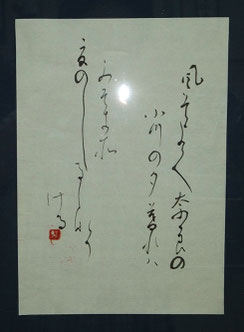 風そよく奈良の
小川の夕暮れハ
みそき所
夏のしるしなり
ける